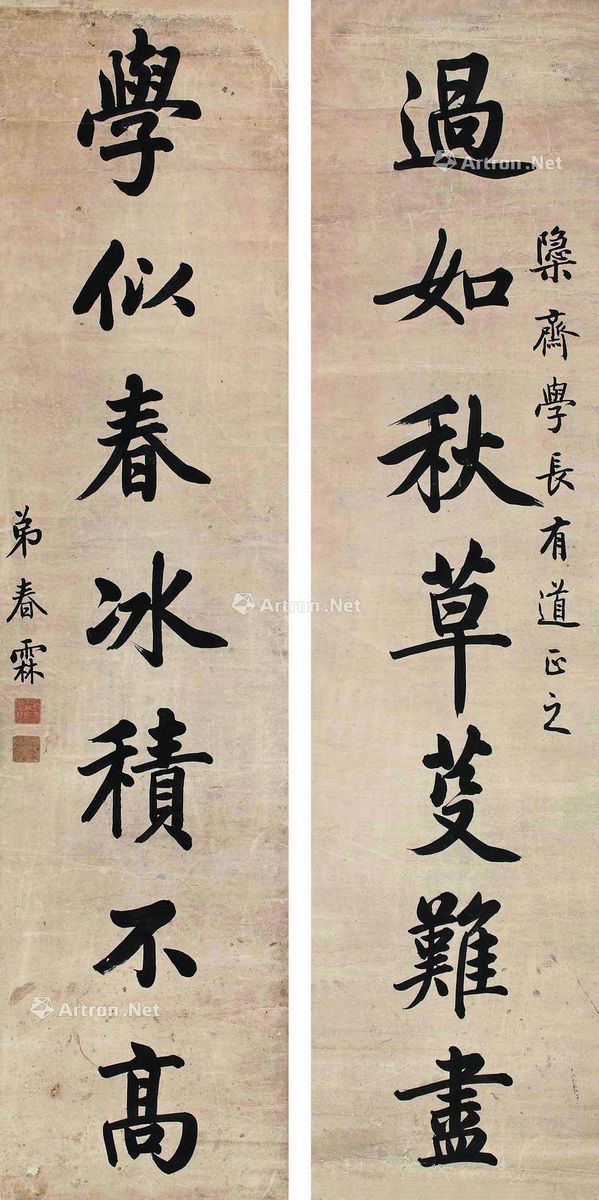 槩齋學長有道正之
過如秋草芟難盡
學似春冰積不高
弟春霖
Artron.Net
Artron.Net
Artron.Net